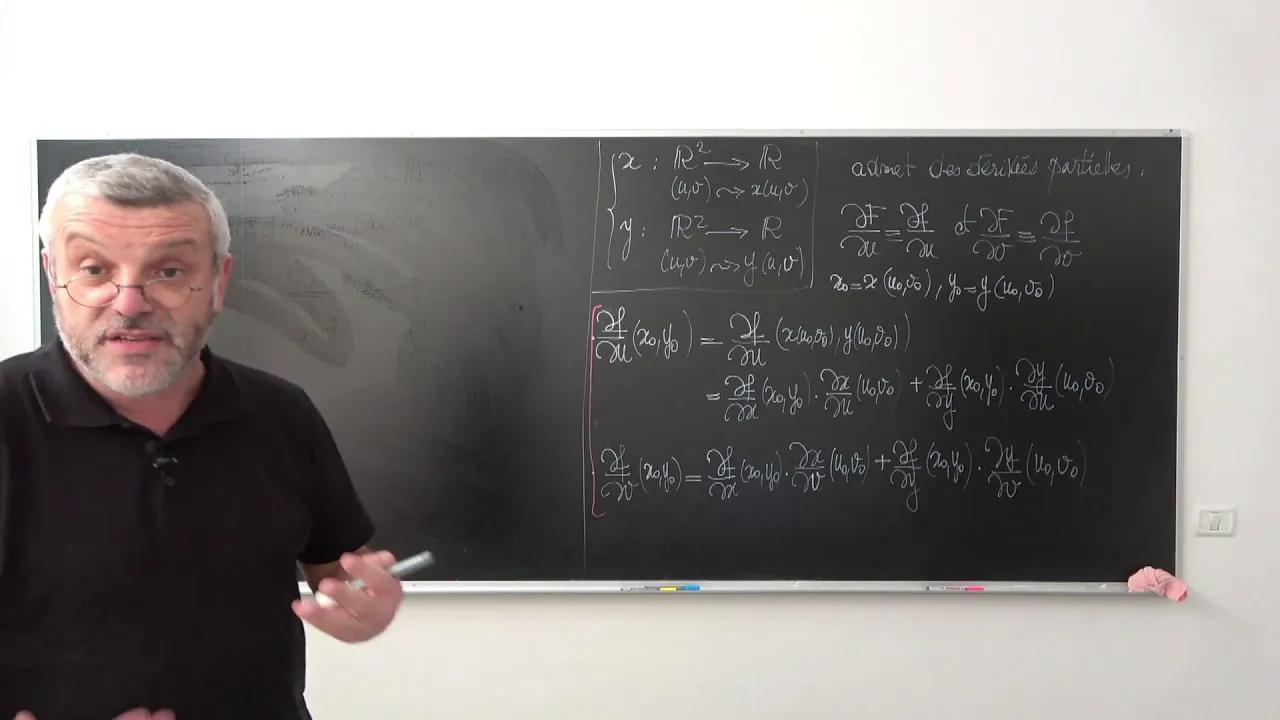 x : ℝ² ⟶ ℝ
(u,v) ⤳ x(u,v)
y : ℝ² ⟶ ℝ
(u,v) ⤳ y(u,v)
admet des dérivées partielles :
∂F/∂u = ∂f/∂u et ∂F/∂v = ∂f/∂v
x₀ = x(u₀,v₀), y₀ = y(u₀,v₀)
∂f/∂u (x₀,y₀) = ∂f/∂u (x(u₀,v₀), y(u₀,v₀))
= ∂f/∂x (x₀,y₀) · ∂x/∂u (u₀,v₀) + ∂f/∂y (x₀,y₀) · ∂y/∂u (u₀,v₀)
∂f/∂v (x₀,y₀) = ∂f/∂x (x₀,y₀) · ∂x/∂v (u₀,v₀) + ∂f/∂y (x₀,y₀) · ∂y/∂v (u₀,v₀)